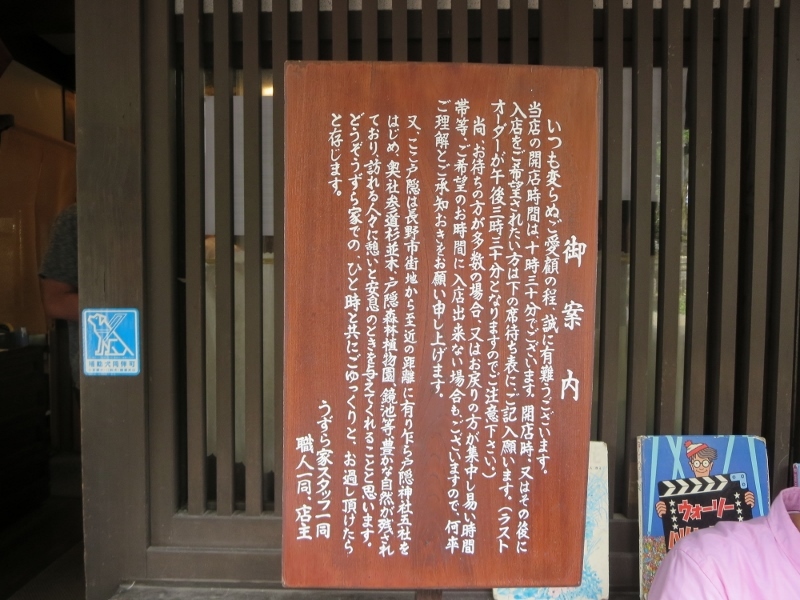 御案内
いつも変らぬご愛顧の程、誠に有難うございます。
当店の開店時間は、十時三十分でございます。開店時、又はその後に
入店をご希望されたい方は下の席待ち表に、ご記入願います。(ラスト
オーダーが午後三時三十分となりますのでご注意下さい)
尚、お待ちの方が多数の場合、又はお戻りの方が集中し易い時間
帯等、ご希望のお時間に入店出来ない場合もございますので、何卒
ご理解とご承知おきをお願い申し上げます。
又、ここ戸隠は長野市街地から至近の距離に有り乍ら戸隠神社五社を
はじめ、奥社参道杉並木、戸隠森林植物園、鏡池等豊かな自然が残され
ており、訪れる人々に憩いと安息のときを与えてくれることと思います。
どうぞうずら家での、ひと時と共にごゆっくりと、お過し頂けたら
と存じます。
うずら家スタッフ一同
職人一同、店主
ウォーリー